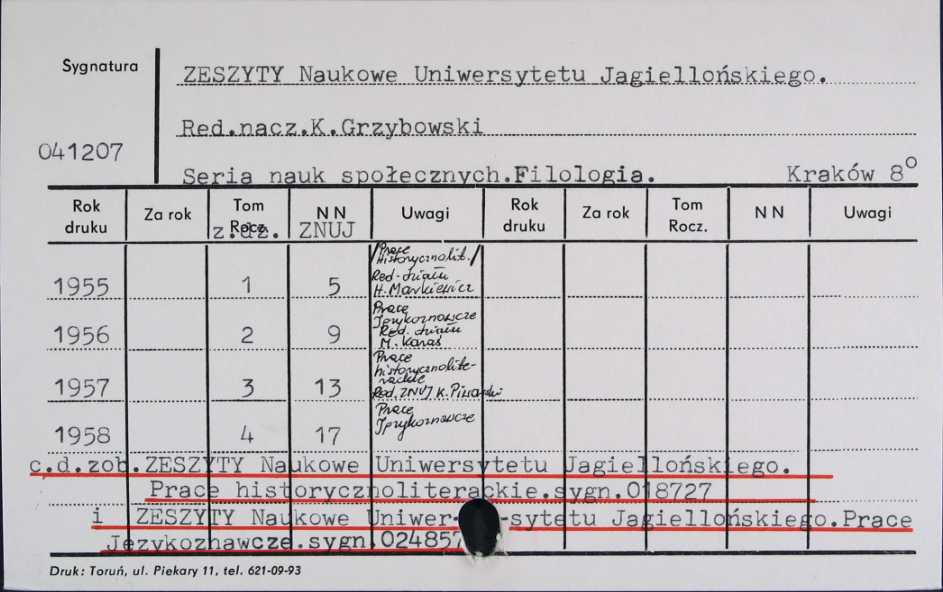 Sygnatura
ZESZYTY Naukowe Uniwersytetu Jagiellońskiego.
Red.nacz.K.Grzybowski
041207
Seria nauk społecznych.Filologia. Kraków 8°
Rok druku Za rok Tom Rocz. N N Uwagi Rok druku Za rok Tom Rocz. N N Uwagi
z.dz. ZNUJ
/Prace
Historycznolit./
1955 1 5 Red. działu
H. Markiewicz
Prace
Językoznawcze
1956 2 9 Red. działu
M. Karaś
Prace
historycznolite-
rackie
1957 3 13 Red. ZNUJ K.
Prace
1958 4 17 Językoznawcze
c.d.zob.ZESZYTY Naukowe Uniwersytetu Jagiellońskiego.
Prace historycznoliterackie.sygn.018727
i ZESZYTY Naukowe Uniwer-sytetu Jagiellońskiego.Prace
Językoznawcze.sygn.024857
Druk: Toruń, ul. Piekary 11, tel. 621-09-93